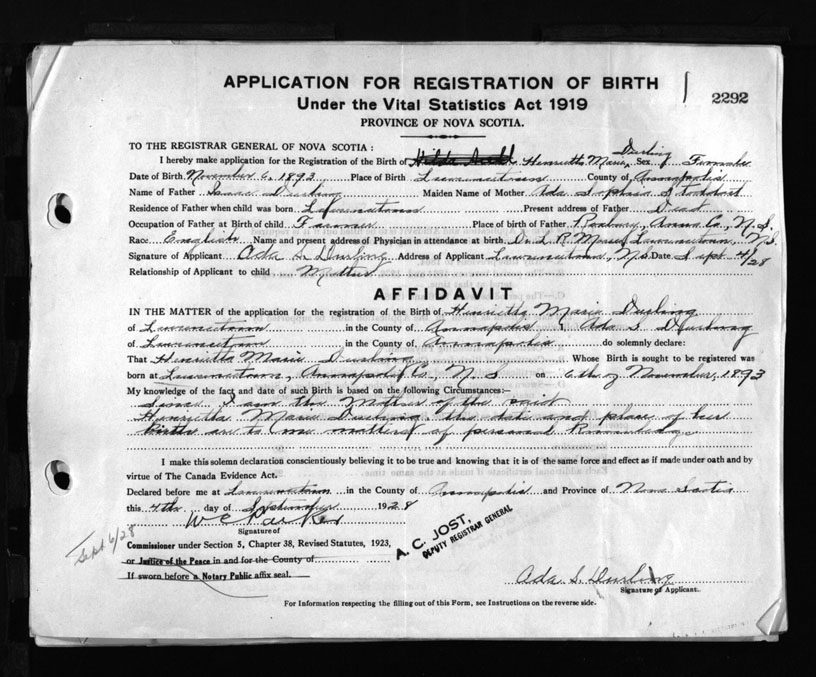 APPLICATION FOR REGISTRATION OF BIRTH
2292
Under the Vital Statistics Act 1919
PROVINCE OF NOVA SCOTIA.
TO THE REGISTRAR GENERAL OF NOVA SCOTIA:
I hereby make application for the Registration of the Birth of Hilda Henrietta Marie Durling Sex Female
Date of Birth November 6, 1893 Place of Birth Lawrencetown County of Annapolis
Name of Father Isaac Durling Maiden Name of Mother Ada Sophia Stoddart
Residence of Father when child was born Lawrencetown Present address of Father Dead
Occupation of Father at Birth of child Farmer Place of birth of Father Roxbury, Anna Co., N.S.
Race English Name and present address of Physician in attendance at birth Dr. L. R. Morse Lawrencetown, N.S.
Signature of Applicant Ada S. Durling Address of Applicant Lawrencetown, N.S. Date Sept 4/28
Relationship of Applicant to child Mother
AFFIDAVIT
IN THE MATTER of the application for the registration of the Birth of Henrietta Marie Durling
of Lawrencetown in the County of Annapolis I, Ada S. Durling
of Lawrencetown in the County of Annapolis do solemnly declare:
That Henrietta Marie Durling Whose Birth is sought to be registered was
born at Lawrencetown, Annapolis Co., N. S. on 6th of November, 1893
My knowledge of the fact and date of such Birth is based on the following Circumstances:—
Since I am the Mother of the said
Henrietta Marie Durling. the date and place of her
Birth are to me matters of personal Knowledge
I make this solemn declaration conscientiously believing it to be true and knowing that it is of the same force and effect as if made under oath and by
virtue of The Canada Evidence Act.
Declared before me at Lawrencetown in the County of Annapolis and Province of Nova Scotia
this 4th day of September 1928
W C Parker
Signature of
Sept 6/28
Commissioner under Section 5, Chapter 38, Revised Statutes, 1923,
or Justice of the Peace in and for the County of
If sworn before a Notary Public affix seal.
A. C. JOST,
DEPUTY REGISTRAR GENERAL
Ada S. Durling
Signature of Applicant.
For Information respecting the filling out of this Form, see Instructions on the reverse side.